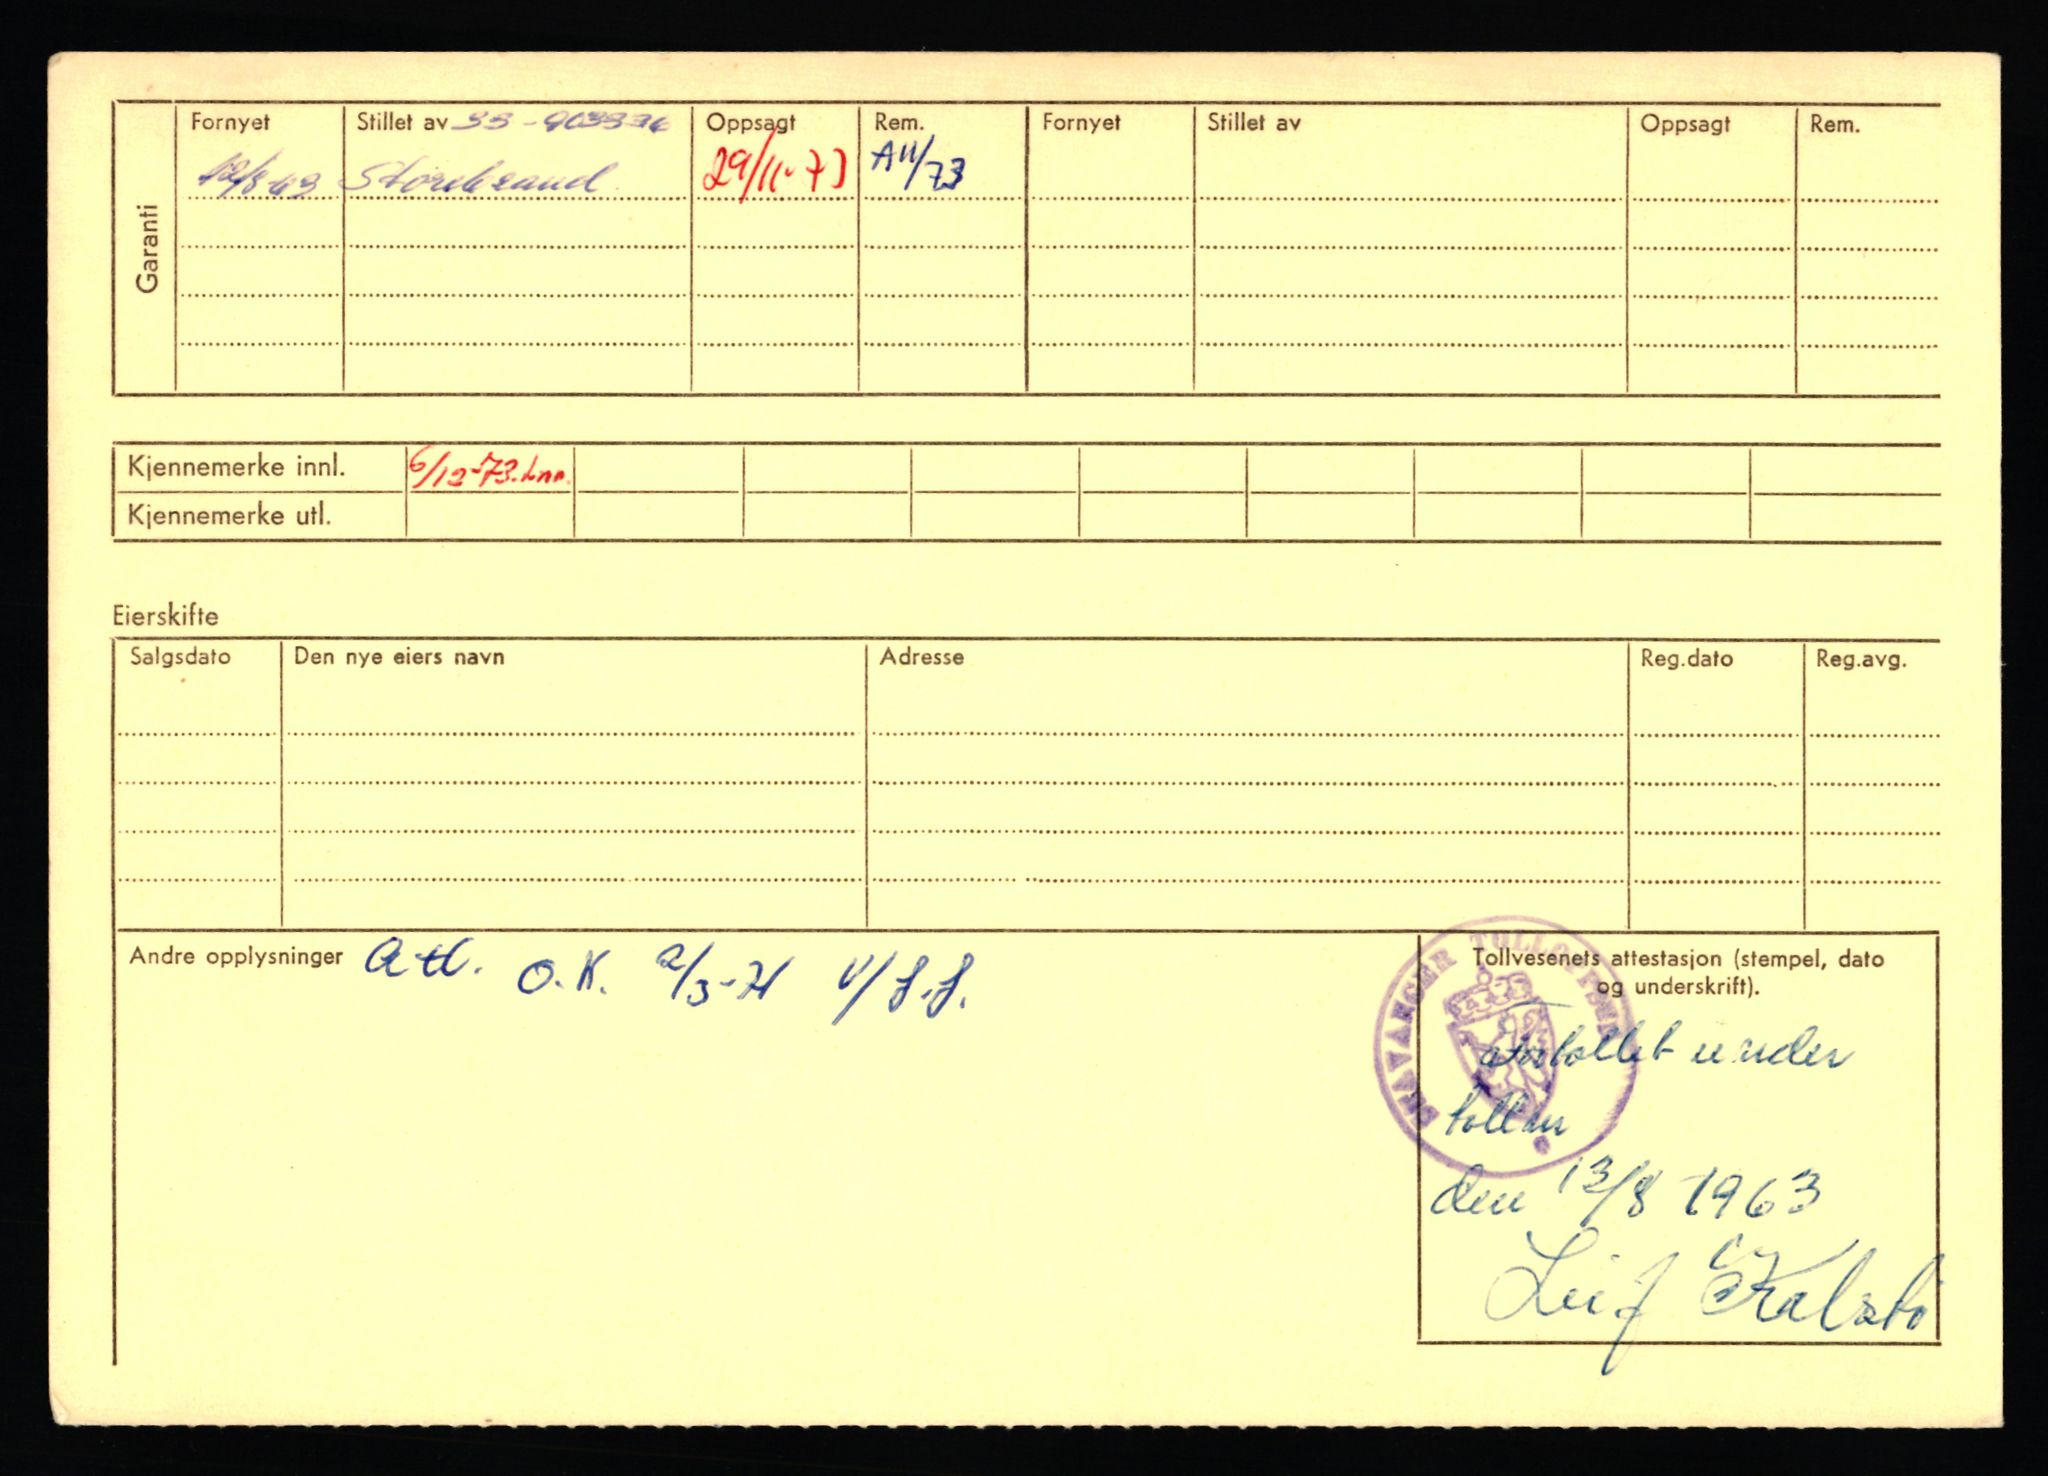 Garanti
Fornyet Stillet av Oppsagt Rem. Fornyet Stillet av Oppsagt Rem.
12/8-63 Storebrand 29/11-73 A11/73
Kjennemerke innl. 6/12-73.
Kjennemerke utl.
Eierskifte
Salgsdato Den nye eiers navn Adresse Reg.dato Reg.avg.
Andre opplysninger O.K. 2/3-71
Tollvesenets attestasjon (stempel, dato
og underskrift).
STAVANGER TOLLOPPSYN
under
den 13/8 1963
Leif Kalstø